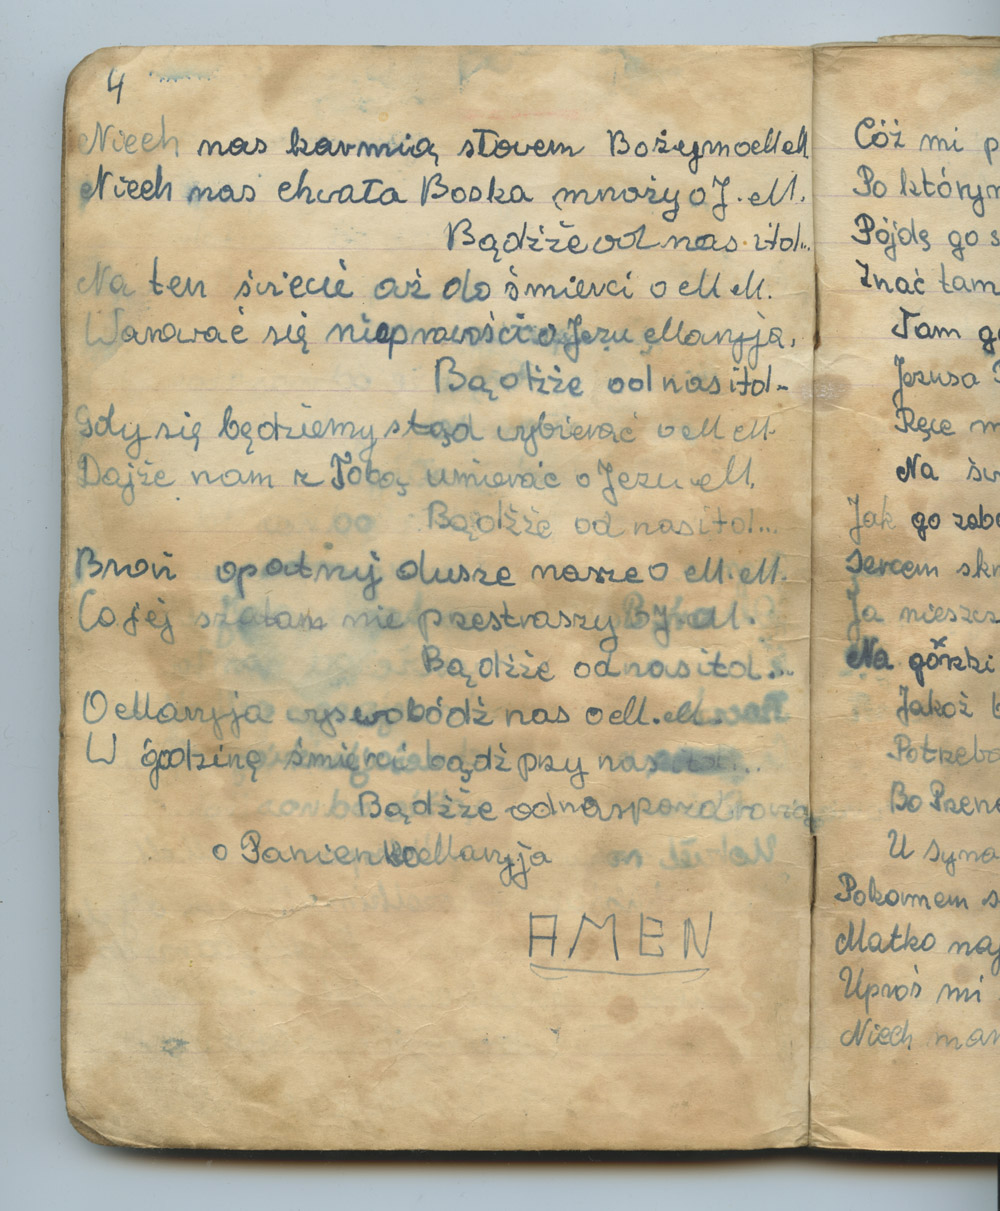 4
Niech nas karmią słovem Bożym o M M
Niech nas chwała Boska mnoży o J. M.
Bądźże od nas itd..
Na ten świecie aż do śmierci o M M.
Warować się nieprawości o Jezu Maryja,
Bądźże od nas itd-
Gdy się będziemy stąd wybierać o M M.
Dajże nam z Tobą umierać o Jezu M.
Bądźże od nas itd...
Broń opatrzij dusze nasze o M. M.
Co jej szatan nie przestraszy M.
Bądźże od nas itd...
O Maryja wyswobódź nas o M. M.
W godzinę śmierci bądź przy nas itd...
Bądźże od nas pozdrowiona
o Panienko Maryja
AMEN
Cóż mi p
Po którym
Pójdę go s
Znać tam
Tam g
Jezusa
Ręce m
Na św
Jak go zoba
Sercem skr
Ja nieszcz
Na górzki
Jakoż b
Potrzeba
Bo Przena
U syna
Pokornem s
Matko naj
Uproś mi
Niech mar